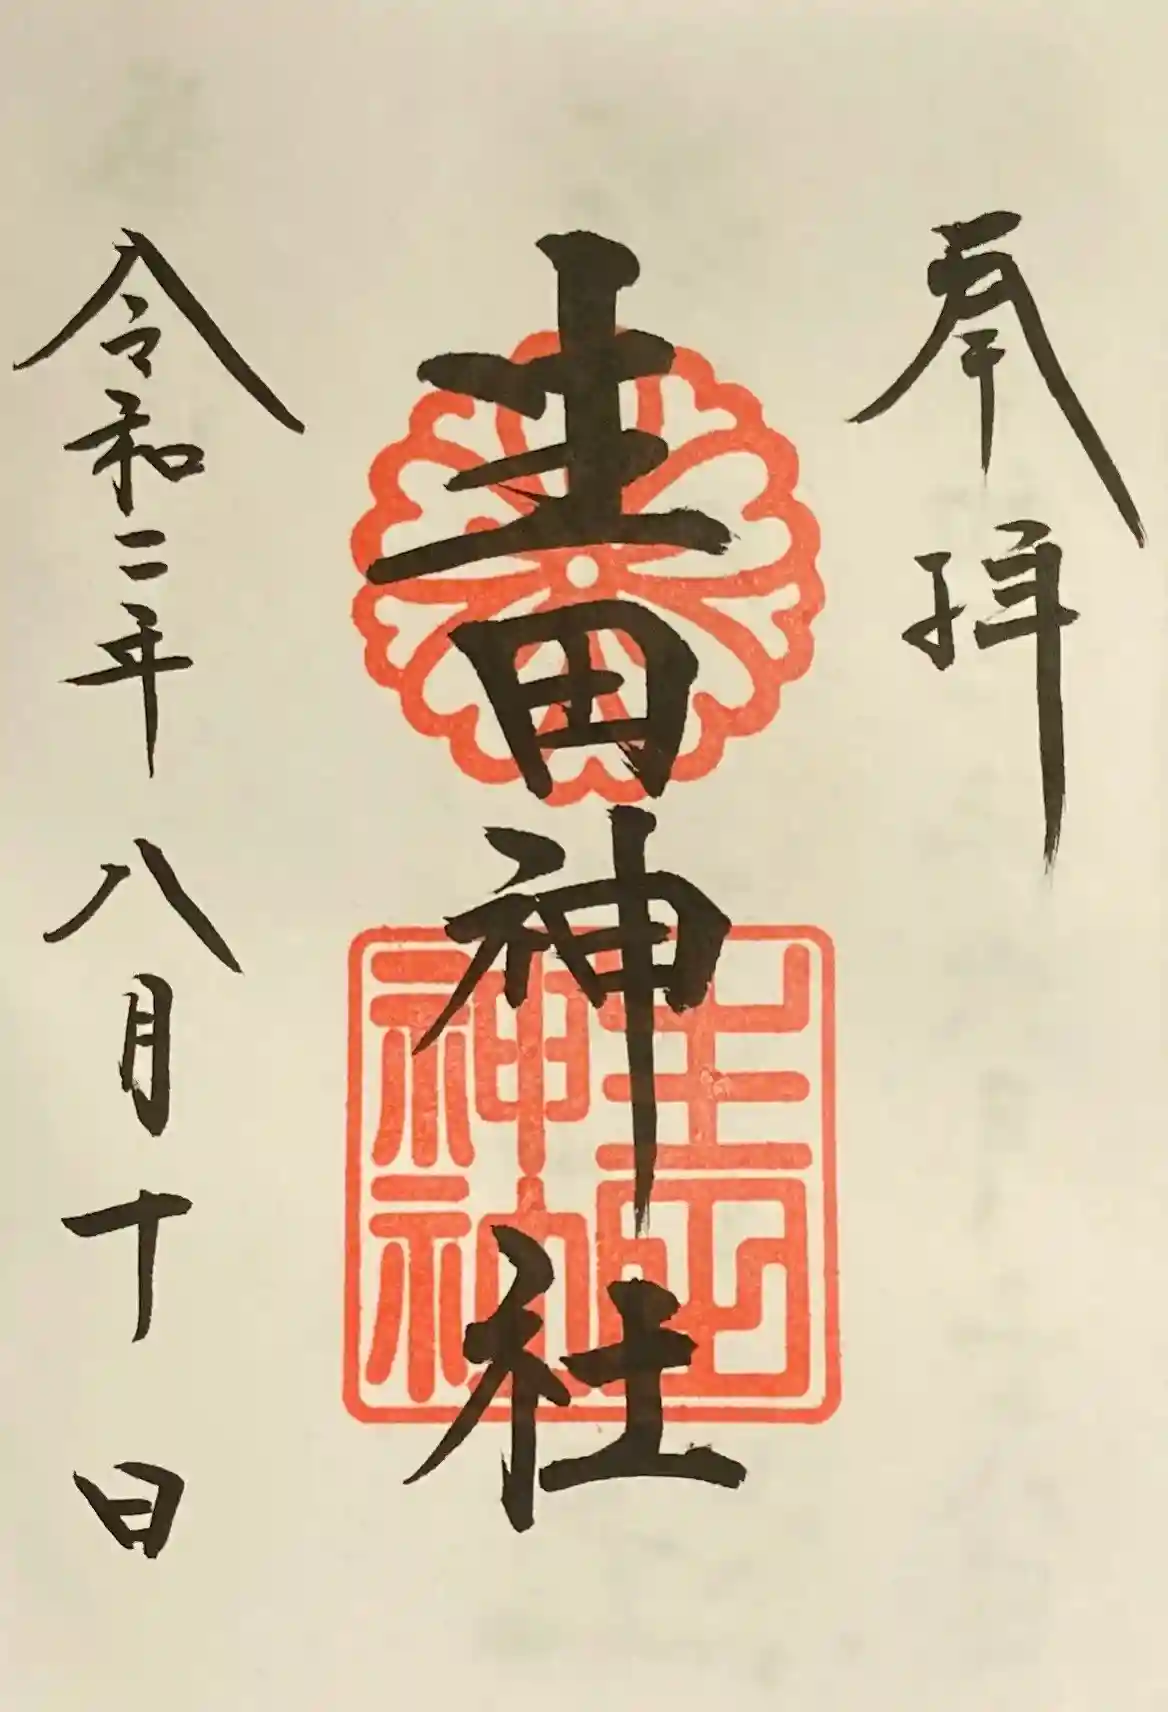 奉拝
生田神社
令和二年八月十日
生田
神社